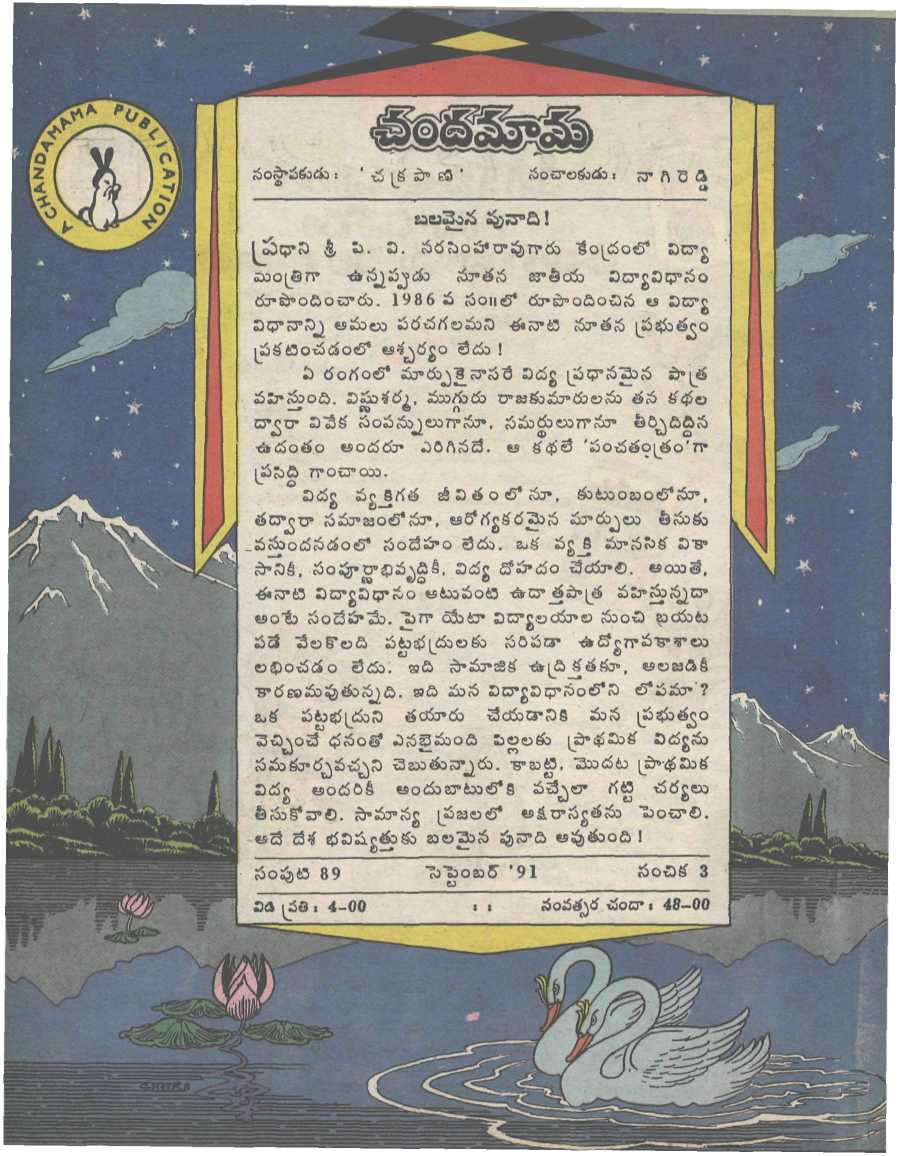 A CHANDAMAMA PUBLICATION
చందమామ
సంస్థాపకుడు : 'చక్రపాణి' సంచాలకుడు : నాగిరెడ్డి
బలమైన పునాది !
ప్రధాని శ్రీ పి. వి. నరసింహారావుగారు కేంద్రంలో విద్యా
మంత్రిగా ఉన్నప్పుడు నూతన జాతీయ విద్యావిధానం
రూపొందించారు. 1986 వ సం॥లో రూపొందించిన ఆ విద్యా
విధానాన్ని అమలు పరచగలమని ఈనాటి నూతన ప్రభుత్వం
ప్రకటించడంలో ఆశ్చర్యం లేదు !
ఏ రంగంలో మార్పుకైనాసరే విద్య ప్రధానమైన పాత్ర
వహిస్తుంది. విష్ణుశర్మ, ముగ్గురు రాజకుమారులను తన కథల
ద్వారా వివేక సంపన్నులుగానూ, సమర్థులుగానూ తీర్చిదిద్దిన
ఉదంతం అందరూ ఎరిగినదే. ఆ కథలే 'పంచతంత్రం'గా
ప్రసిద్ధి గాంచాయి.
విద్య వ్యక్తిగత జీవితంలోనూ, కుటుంబంలోనూ,
తద్వారా సమాజంలోనూ, ఆరోగ్యకరమైన మార్పులు తీసుకు
వస్తుందనడంలో సందేహం లేదు. ఒక వ్యక్తి మానసిక వికా
సానికీ, సంపూర్ణాభివృద్ధికీ, విద్య దోహదం చేయాలి. అయితే,
ఈనాటి విద్యావిధానం అటువంటి ఉదాత్తపాత్ర వహిస్తున్నదా
అంటే సందేహమే. పైగా యేటా విద్యాలయాల నుంచి బయట
పడే వేలకొలది పట్టభద్రులకు సరిపడా ఉద్యోగావకాశాలు
లభించడం లేదు. ఇది సామాజిక ఉద్రిక్తతకూ, అలజడికీ
కారణమవుతున్నది. ఇది మన విద్యావిధానంలోని లోపమా ?
ఒక పట్టభద్రుని తయారు చేయడానికి మన ప్రభుత్వం
వెచ్చించే ధనంతో ఎనభైమంది పిల్లలకు ప్రాథమిక విద్యను
సమకూర్చవచ్చని చెబుతున్నారు. కాబట్టి, మొదట ప్రాథమిక
విద్య అందరికీ అందుబాటులోకి వచ్చేలా గట్టి చర్యలు
తీసుకోవాలి. సామాన్య ప్రజలలో అక్షరాస్యతను పెంచాలి.
అదే దేశ భవిష్యత్తుకు బలమైన పునాది అవుతుంది !
సంపుటి 89 సెప్టెంబర్ '91 సంచిక 3
విడి ప్రతి : 4-00 : : సంవత్సర చందా : 48-00
CHITRA